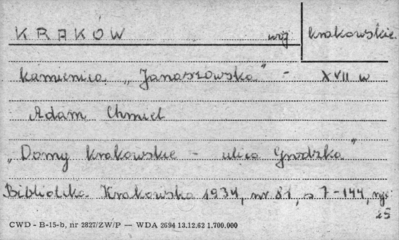 KRAKÓW woj krakowskie
kamienica "Janaszowska" - XVII w
Adam Chmiel
"Domy krakowskie - ulica Grodzka"
Biblioteka Krakowska 1934, nr. 81, s 7-144, ryc
25
CWD - B-15-b, nr 2827/ZW/P — WDA 2694 13.12.62 1.700.000